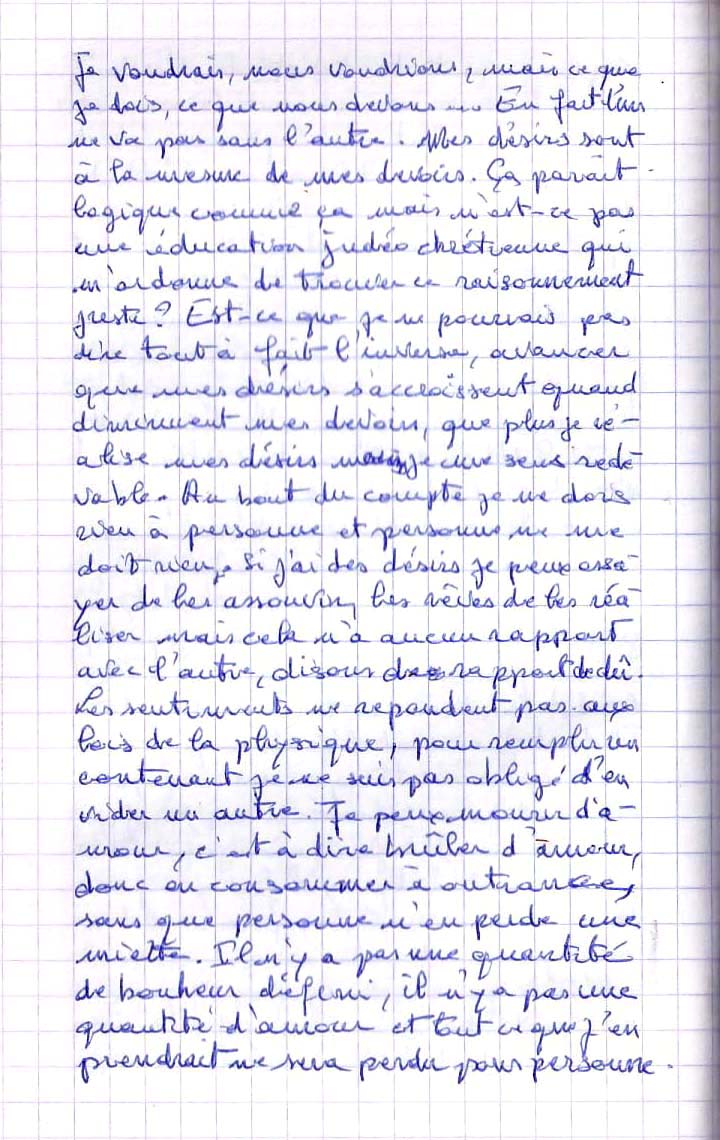 Je voudrais, nous voudrions, mais ce que
je dois, ce que nous devons ... En fait l'un
ne va pas sans l'autre. Mes désirs sont
à la mesure de mes devoirs. Ça parait
logique comme ça mais n'est-ce pas
une éducation judéo chrétienne qui
m'ordonne de trouver ce raisonnement
juste ? Est-ce que je ne pourrais pas
dire tout à fait l'inverse, avancer
que mes désirs s'accroissent quand
diminuent mes devoirs, que plus je ré-
alise mes désirs je me sens rede-
vable. Au bout du compte je ne dois
rien à personne et personne ne me
doit rien. Si j'ai des désirs je peux essa-
yer de les assouvir, les rêves de les réa-
liser mais cela n'a aucun rapport
avec l'autre, disons de rapport de dû.
Les sentiments ne repondent pas aux
lois de la physique, pour remplir un
contenant je ne suis pas obligé d'en
vider un autre. Je peux mourir d'a-
mour, c'est à dire brûler d'amour,
donc en consommer à outrance,
sans que personne n'en perde une
miette. Il n'y a pas une quantité
de bonheur défini, il n'y a pas une
quantité d'amour et tout ce que j'en
prendrait ne sera perdu pour personne.